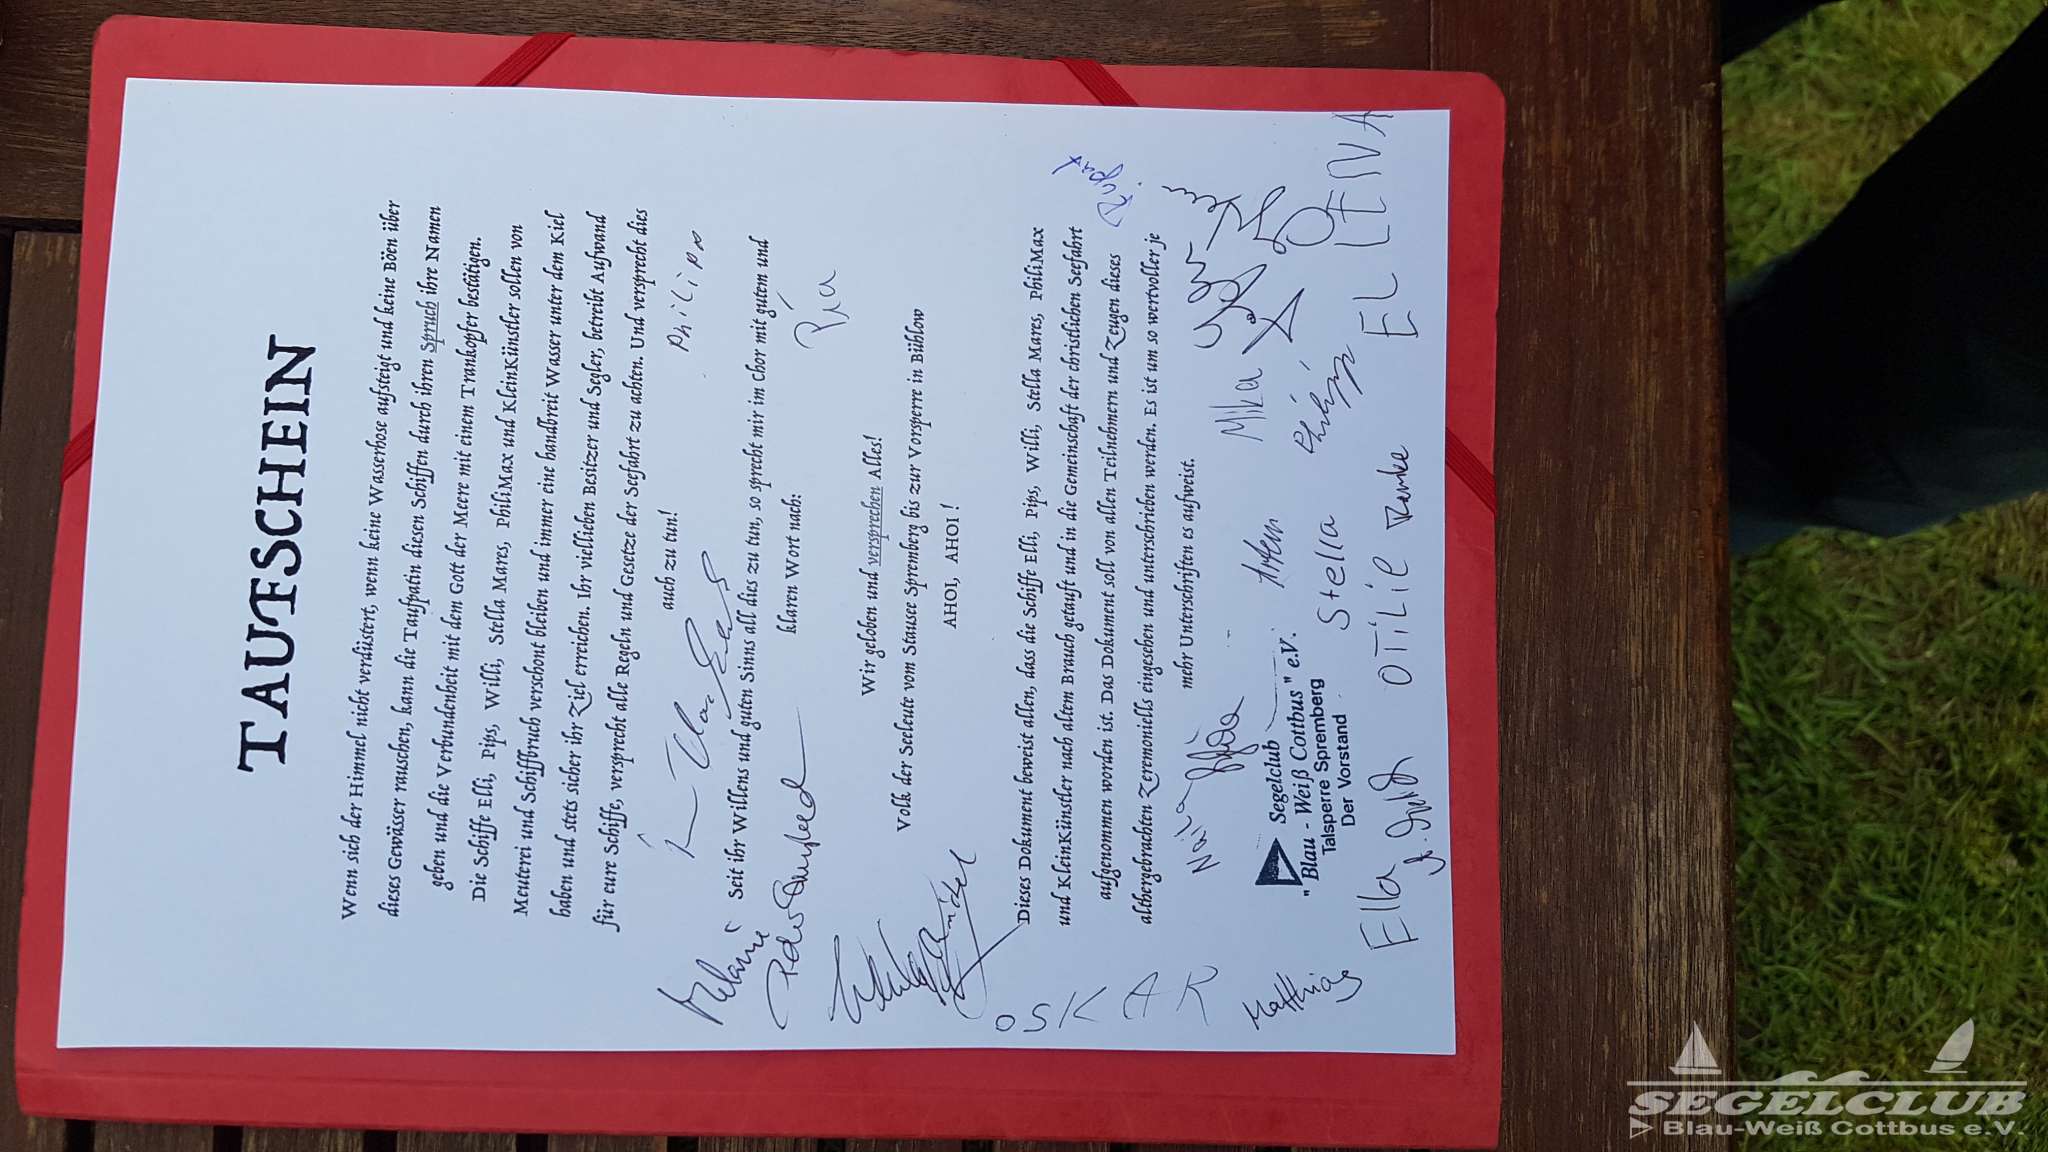 TAUFSCHEIN
Wenn sich der Himmel nicht verdüstert, wenn keine Wasserhose aufsteigt und keine Böen über
dieses Gewässer rauschen, kann die Taufpatin diesen Schiffen durch ihren Spruch ihre Namen
geben und die Verbundenheit mit dem Gott der Meere mit einem Trankopfer bestätigen.
Die Schiffe Elli, Pips, Willi, Stella Mares, PhiliMax und KleinKünstler sollen von
Meuterei und Schiffbruch verschont bleiben und immer eine handbreit Wasser unter dem Kiel
haben und stets sicher ihr Ziel erreichen. Ihr viellieben Besitzer und Segler, betreibt Aufwand
für eure Schiffe, versprecht alle Regeln und Gesetze der Seefahrt zu achten. Und versprecht dies
auch zu tun!
Philipp
Melanie
Seit ihr Willens und guten Sinns all dies zu tun, so sprecht mir im Chor mit gutem und
klaren Wort nach:
Pia
Wir geloben und versprechen Alles!
Volk der Seeleute vom Stausee Spremberg bis zur Vorsperre in Bühlow
AHOI, AHOI !
Dieses Dokument beweist allen, dass die Schiffe Elli, Pips, Willi, Stella Mares, PhiliMax
und KleinKünstler nach altem Brauch getauft und in die Gemeinschaft der christlichen Seefahrt
aufgenommen worden ist. Das Dokument soll von allen Teilnehmern und Zeugen dieses
althergebrachten Zeremoniells eingesehen und unterschrieben werden. Es ist um so wertvoller je
mehr Unterschriften es aufweist.
OSKAR
Mika
Artem
Matthias
Segelclub
" Blau - Weiß Cottbus " e.V.
Talsperre Spremberg
Der Vorstand
Stella
Ella
OTiLiE
ELLENA
SEGELCLUB
Blau-Weiß Cottbus e.V.